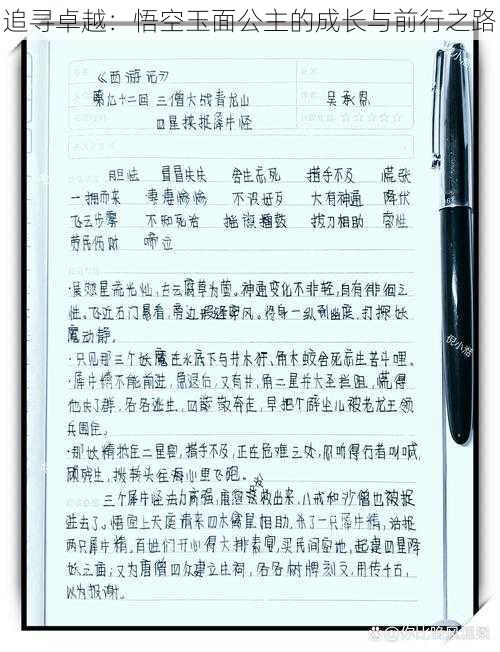 追寻卓越：悟空玉面公主的成长与前行之路
《西游记》
第九十二回 三僧大战青龙山 吴承恩
四星挟捉犀牛怪
胆怯 冒冒失失 舍生忘死 措手不及 慌张
一拥而来 凄凄惨惨 不识抵反 大有神通 降伏
飞云步雾 不知死活 摇旗擂鼓 拔刀相助
劳民伤财
·展翅星流光灿，古云腐草为萤。神通变化不非轻，自有徘徊之
性。飞近石门悬看，旁边瑕缝穿风。将身一纵到幽庭，打探妖
魔动静。
·只见那三个妖魔在水底下与井木犴、角木蛟舍死忘生苦斗哩。
·犀牛精不能前进，急退后，又有井、角二星并大圣挡阻，慌得
他失了群，各各逃生，四散奔走，早把个辟尘儿被老龙王领
兵围住。
·那妖精抵住二星君，措手不及，正在危难之处，忽听得行者叫喊，
顾残生，拨转头往海心里飞跑。
三个犀牛怪法力高强，唐僧没救出来，八戒和沙僧也被捉
进去了。悟空上天庭请来四木禽星相助，杀了一只犀牛精，活捉
两只犀牛精。百姓们开心得大排素宴，买民间田地，起建四星降
妖之庙；又为唐僧四众建立生祠，各各树牌刻文，用传千古，
以为报谢。
倪小浩
@你比晚风温柔